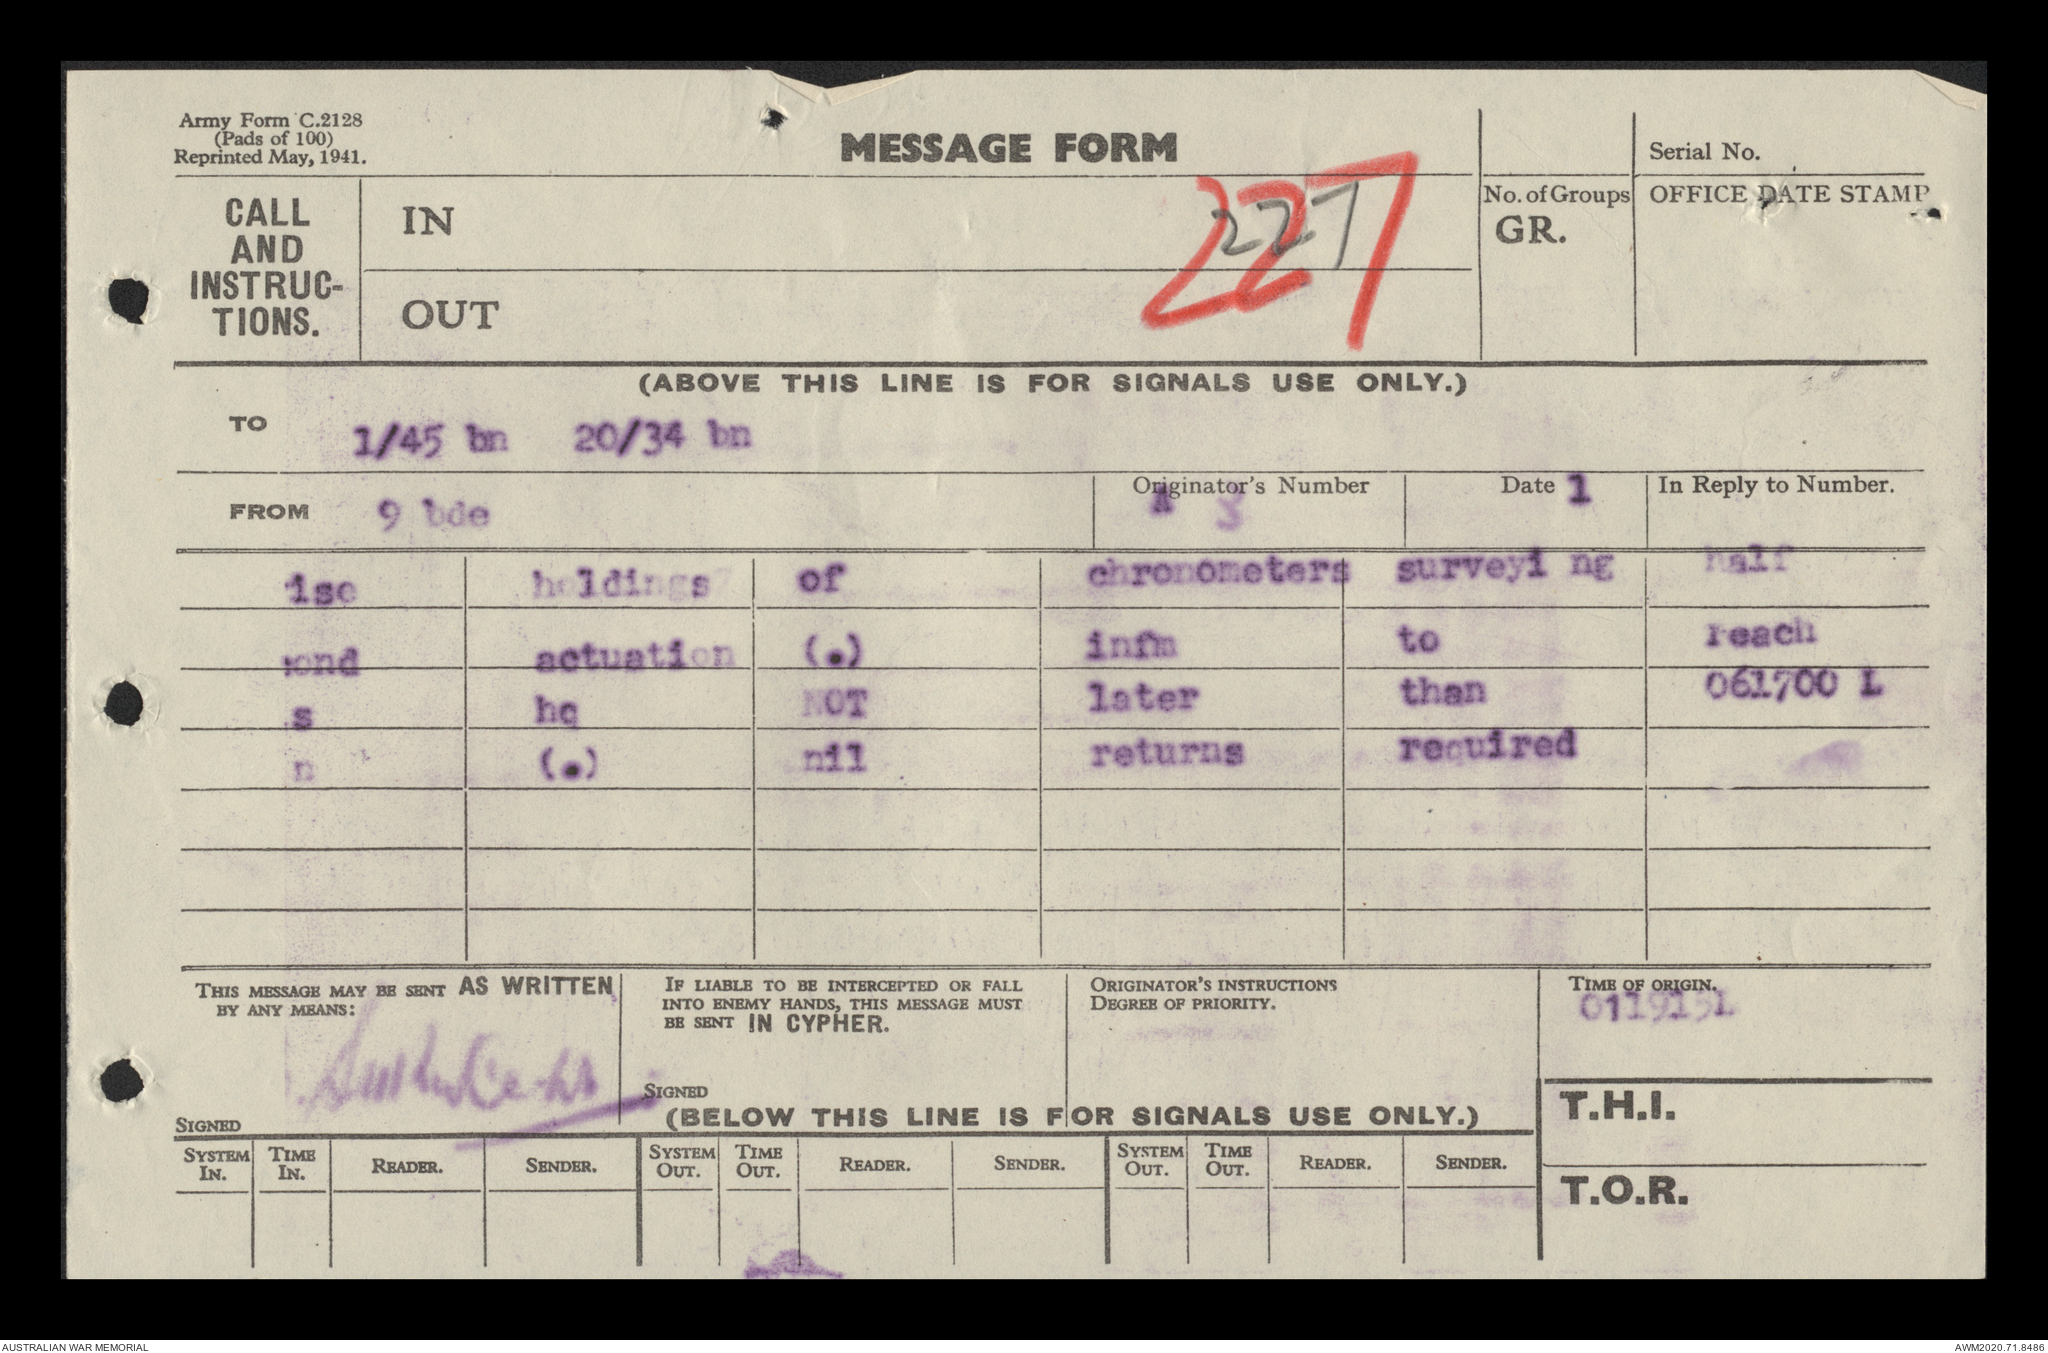 Army Form C.2128
(Pads of 100)
Reprinted May, 1941.
MESSAGE FORM
Serial No.
CALL
AND
INSTRUC-
TIONS.
IN
OUT
227
227
No. of Groups
GR.
OFFICE DATE STAMP
(ABOVE THIS LINE IS FOR SIGNALS USE ONLY.)
TO 1/45 bn 20/34 bn
FROM 9 bde
Originator's Number A 3
Date 1
In Reply to Number.
ise holdings of chronometers surveyi ng half
ond actuation (.) infm to reach
s hq NOT later than 061700 L
n (.) nil returns required
THIS MESSAGE MAY BE SENT AS WRITTEN
BY ANY MEANS:
SIGNED
IF LIABLE TO BE INTERCEPTED OR FALL
INTO ENEMY HANDS, THIS MESSAGE MUST
BE SENT IN CYPHER.
SIGNED
ORIGINATOR'S INSTRUCTIONS
DEGREE OF PRIORITY.
TIME OF ORIGIN.
011915L
(BELOW THIS LINE IS FOR SIGNALS USE ONLY.)
T.H.I.
T.O.R.
SYSTEM IN. TIME IN. READER. SENDER. SYSTEM OUT. TIME OUT. READER. SENDER. SYSTEM OUT. TIME OUT. READER. SENDER.
AUSTRALIAN WAR MEMORIAL
AWM2020.71.8486